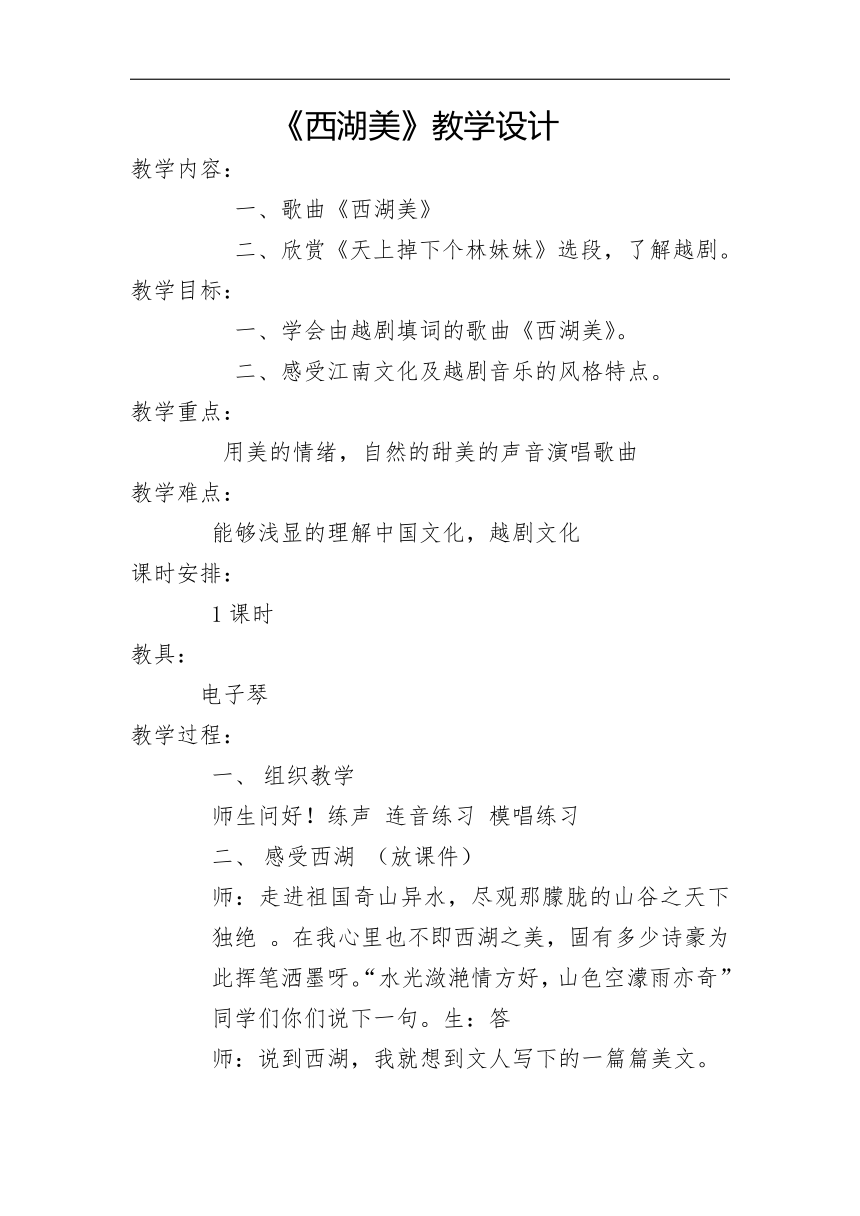 《西湖美》教学设计
教学内容：
一、歌曲《西湖美》
二、欣赏《天上掉下个林妹妹》选段，了解越剧。
教学目标：
一、学会由越剧填词的歌曲《西湖美》。
二、感受江南文化及越剧音乐的风格特点。
教学重点：
用美的情绪，自然的甜美的声音演唱歌曲
教学难点：
能够浅显的理解中国文化，越剧文化
课时安排：
1 课时
教具：
电子琴
教学过程：
一、 组织教学
师生问好！练声 连音练习 模唱练习
二、 感受西湖 （放课件）
师：走进祖国奇山异水，尽观那朦胧的山谷之天下
独绝 。在我心里也不即西湖之美，固有多少诗豪为
此挥笔洒墨呀。“水光潋滟情方好，山色空濛雨亦奇”
同学们你们说下一句。生：答
师：说到西湖，我就想到文人写下的一篇篇美文。